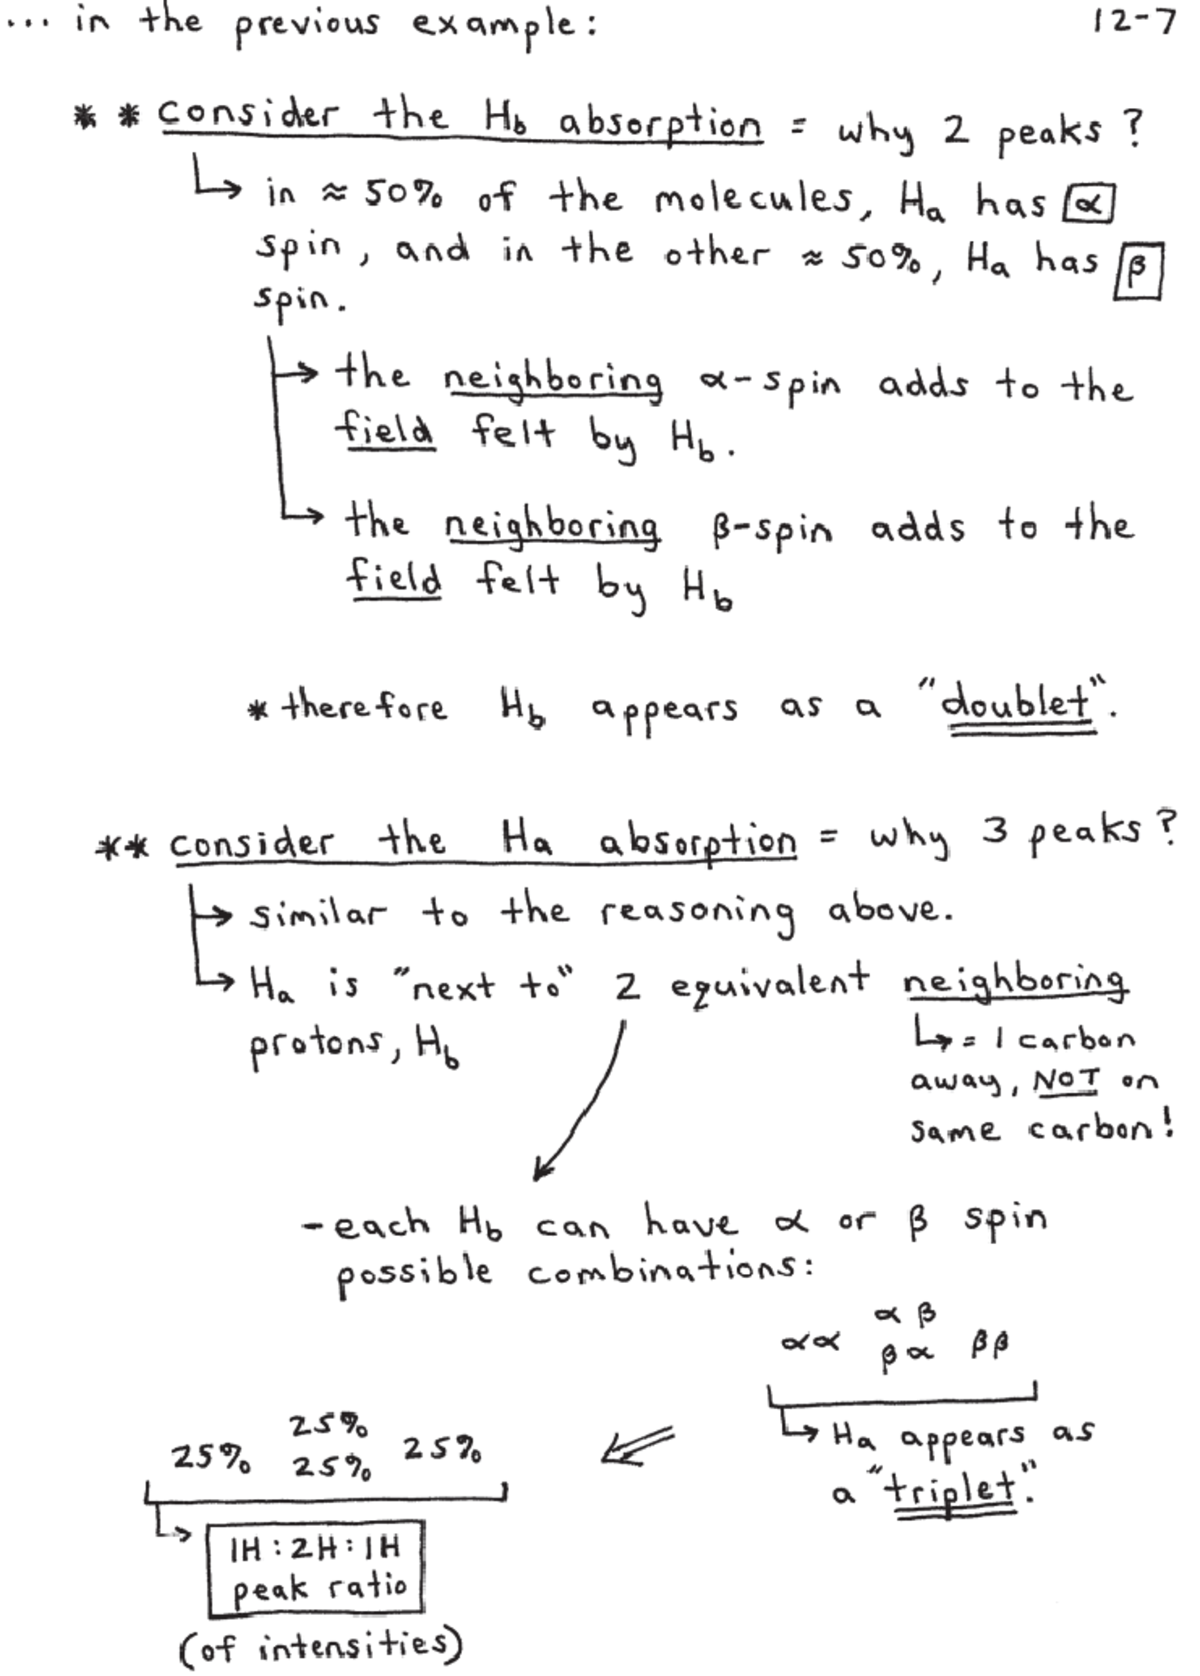 ... in the previous example:
12-7
** consider the Hb absorption = why 2 peaks?
↳ in ≈ 50% of the molecules, Ha has α
spin, and in the other ≈ 50%, Ha has β
spin.
→ the neighboring α-spin adds to the
field felt by Hb.
→ the neighboring β-spin adds to the
field felt by Hb
* therefore Hb appears as a "doublet".
** consider the Ha absorption = why 3 peaks?
→ similar to the reasoning above.
→ Ha is "next to" 2 equivalent neighboring
protons, Hb
↳ = 1 carbon
away, NOT on
same carbon!
- each Hb can have α or β spin
possible combinations:
α β
αα β α ββ
↳ Ha appears as
a "triplet".
25%
25% 25% 25%
1H : 2H : 1H
peak ratio
(of intensities)